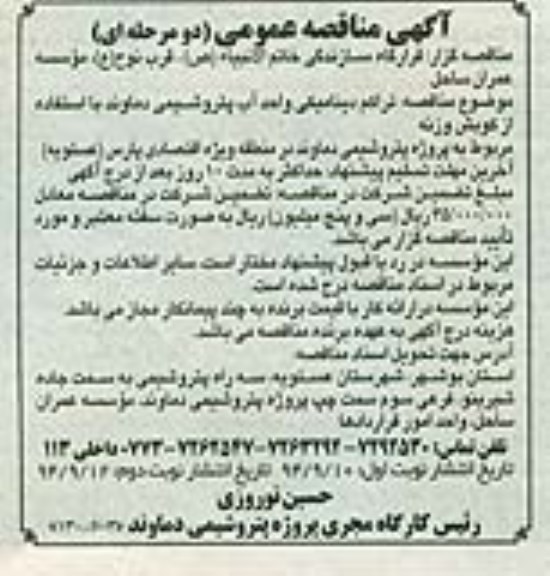 آگهی مناقصه عمومی (دو مرحله ای)
مناقصه گزار: قرارگاه سازندگی خاتم الانبیاء (ص)، قرب نوح(ع)، مؤسسه
عمران ساحل
موضوع مناقصه: تراکم دینامیکی واحد آب پتروشیمی دماوند با استفاده
از کوبش وزنه
مربوط به پروژه پتروشیمی دماوند در منطقه ویژه اقتصادی پارس (عسلویه)
آخرین مهلت تسلیم پیشنهاد: حداکثر به مدت ۱۰ روز بعد از درج آگهی
مبلغ تضمین شرکت در مناقصه: تضمین شرکت در مناقصه معادل
۳۵/۰۰۰/۰۰۰ ریال (سی و پنج میلیون) ریال به صورت سفته معتبر و مورد
تأیید مناقصه گزار می باشد.
این مؤسسه در رد یا قبول پیشنهاد مختار است. سایر اطلاعات و جزئیات
مربوط در اسناد مناقصه درج شده است.
این مؤسسه در ارائه کار با قیمت برنده به چند پیمانکار مجاز می باشد.
هزینه درج آگهی به عهده برنده مناقصه می باشد.
آدرس جهت تحویل اسناد مناقصه:
استان بوشهر، شهرستان عسلویه، سه راه پتروشیمی به سمت جاده
شیرینو، فرعی سوم سمت چپ پروژه پتروشیمی دماوند، مؤسسه عمران
ساحل، واحد امور قراردادها
تلفن تماس: ۷۲۹۲۵۳۰ - ۷۲۶۳۲۹۲ - ۷۲۶۲۵۴۷ - ۰۷۷۳ داخلی ۱۱۳
تاریخ انتشار نوبت اول: ۹۲/۹/۱۰ تاریخ انتشار نوبت دوم: ۹۲/۹/۱۲
حسین نوروزی
رئیس کارگاه مجری پروژه پتروشیمی دماوند